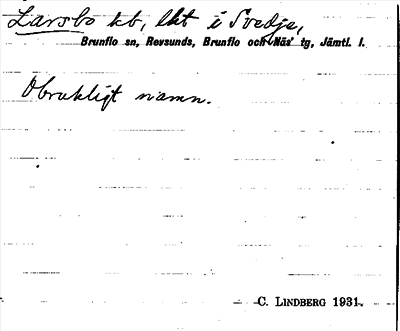 Larsbo kb, lht i Svedje,
Brunflo sn, Revsunds, Brunflo och Näs tg, Jämtl. l.
Obrukligt namn.
C. LINDBERG 1931.